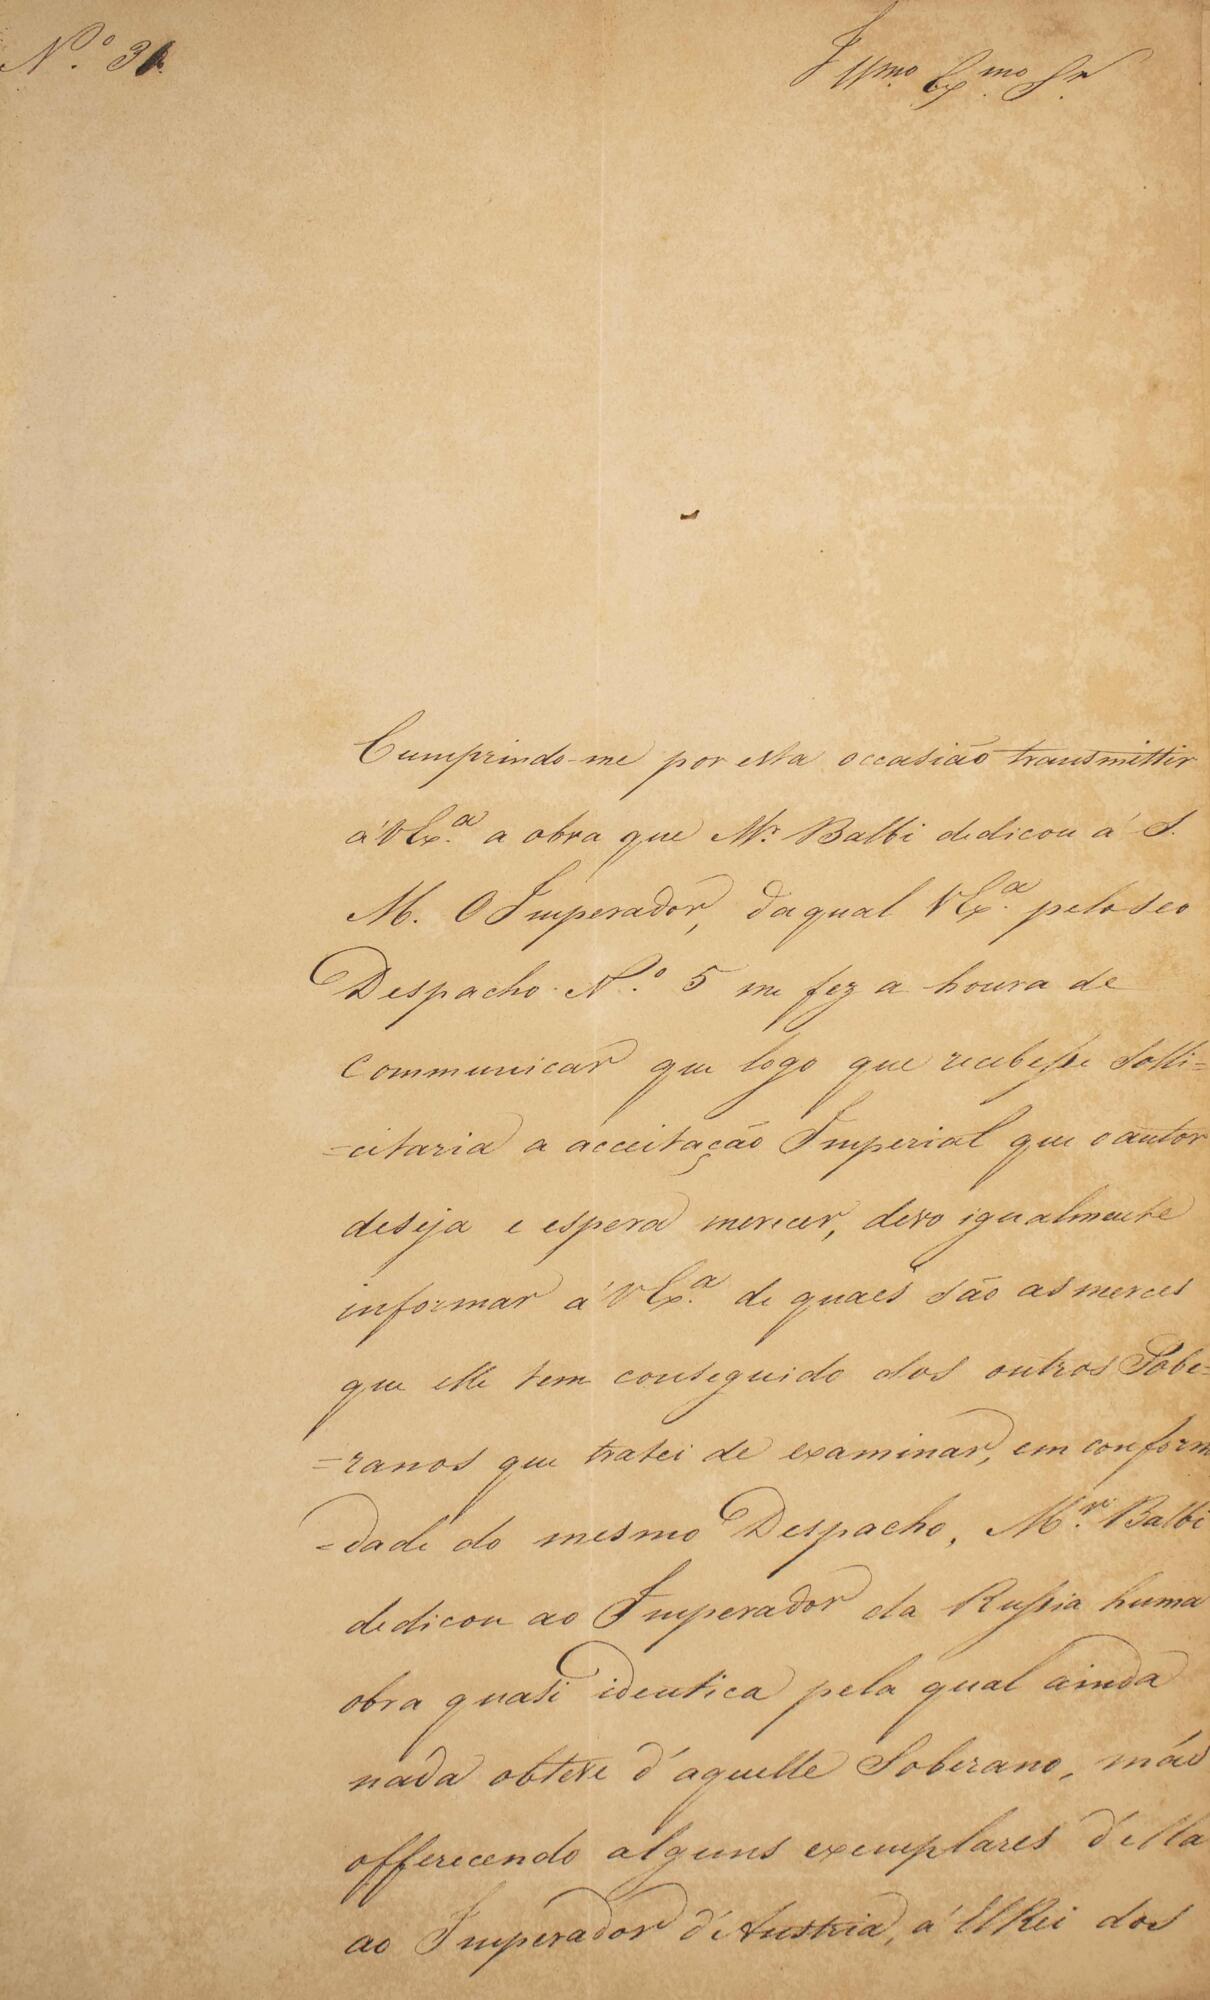 N.º 31.
Illmo. Exmo. Snr.
Cumprindo-me por esta occasião transmittir
á VEx.ª a obra que Mr. Balbi dedicou á S.
M. O Imperador, daqual VEx.ª pelo seo
Despacho N.º 5 me fez a honra de
communicar que logo que recebesse solli=
=citaria a acceitação Imperial que o autor
deseja e espera merecer, devo igualmente
informar á VEx.ª de quaes são as merces
que elle tem conseguido dos outros Sobe=
=ranos que tratei de examinar, em conform
=dade do mesmo Despacho. Mr. Balbi
dedicou ao Imperador da Russia huma
obra quasi identica pela qual ainda
nada obteve d'aquelle Soberano, más
offerecendo alguns exemplares d'ella
ao Imperador d'Austria, á ElRei dos